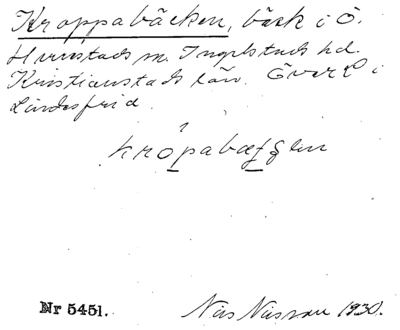 Kroppabäcken, bäck i Ö.
Hunstads sn. Ingelstads hd.
Kristianstads län. Överl i
Lindesfrid.
krop̱abæf̱gen
Nr 5451. Nils Nilsson 1930.